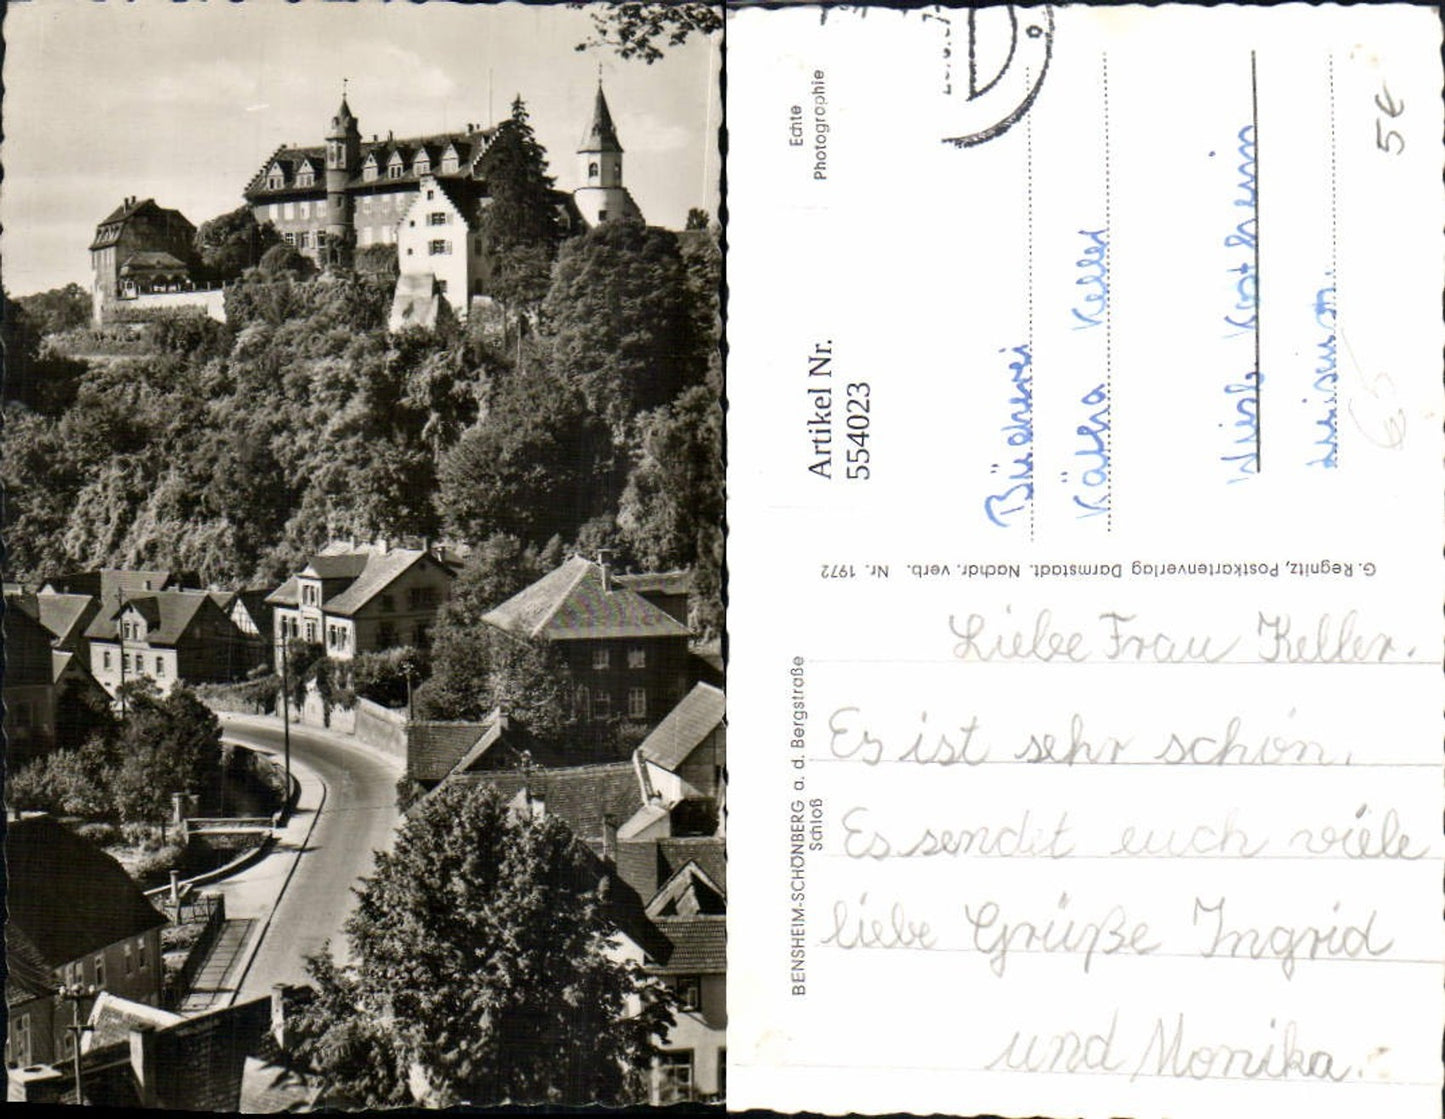 Echte
Photographie
Artikel Nr.
554023
5€
Bücherei
Käthe Keller
G. Regnitz, Postkartenverlag Darmstadt. Nachdr. verb. Nr. 1972
BENSHEIM-SCHÖNBERG a. d. Bergstraße
Schloß
Liebe Frau Keller.
Es ist sehr schön.
Es sendet euch viele
liebe Grüße Ingrid
und Monika.